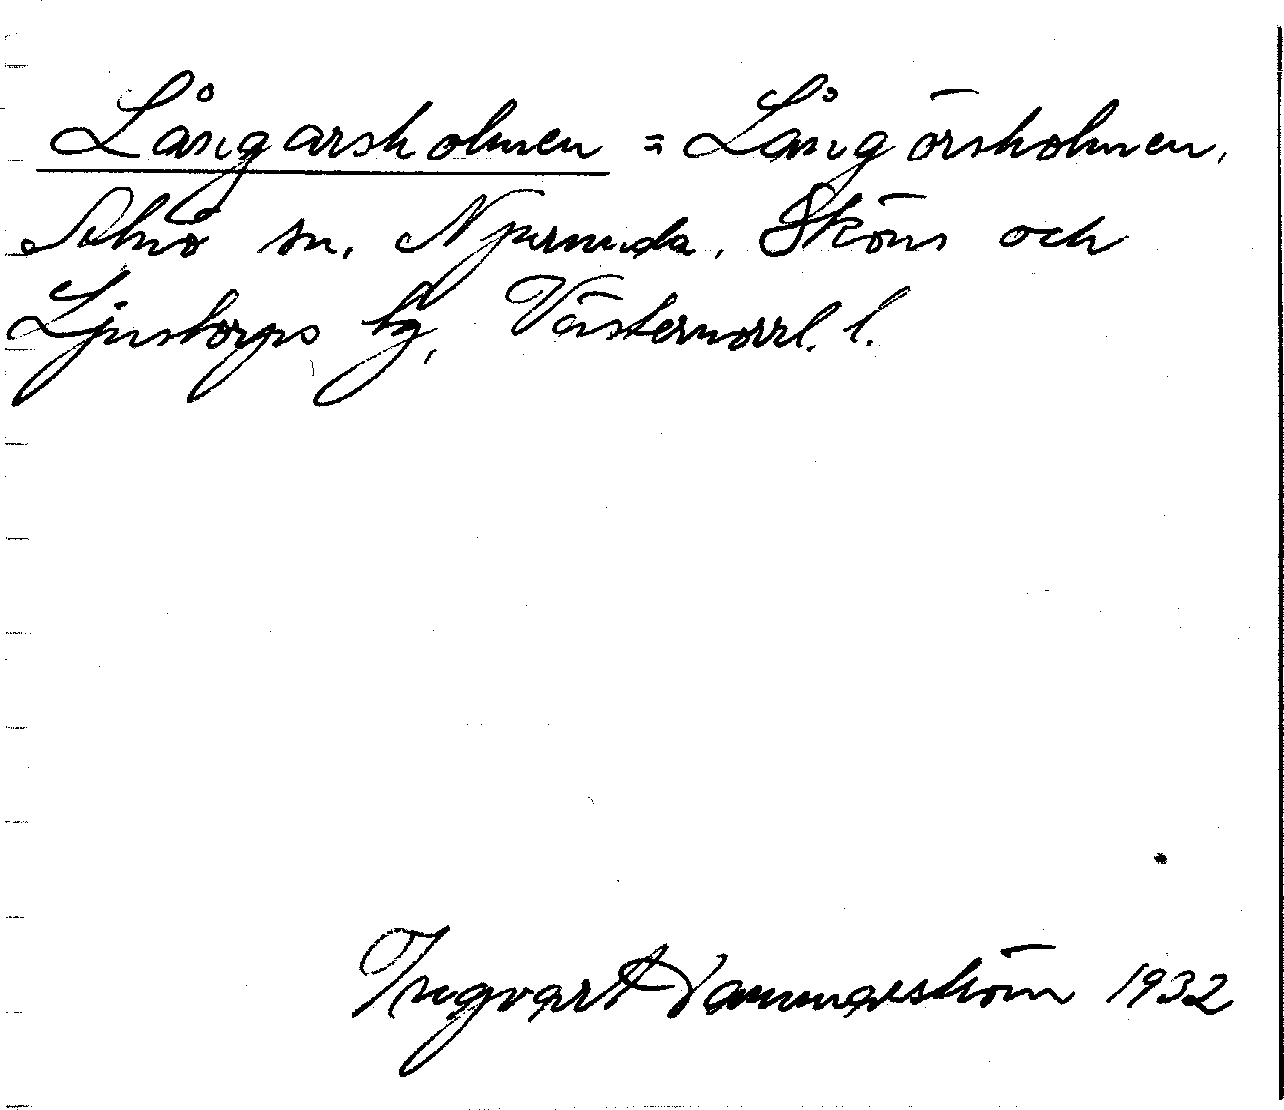 Långarsholmen = Långörsholmen,
Selånö sn, Njurunda, Sköns och
Ljustorps tg, Västernorrl. l.
Ingvart 1932